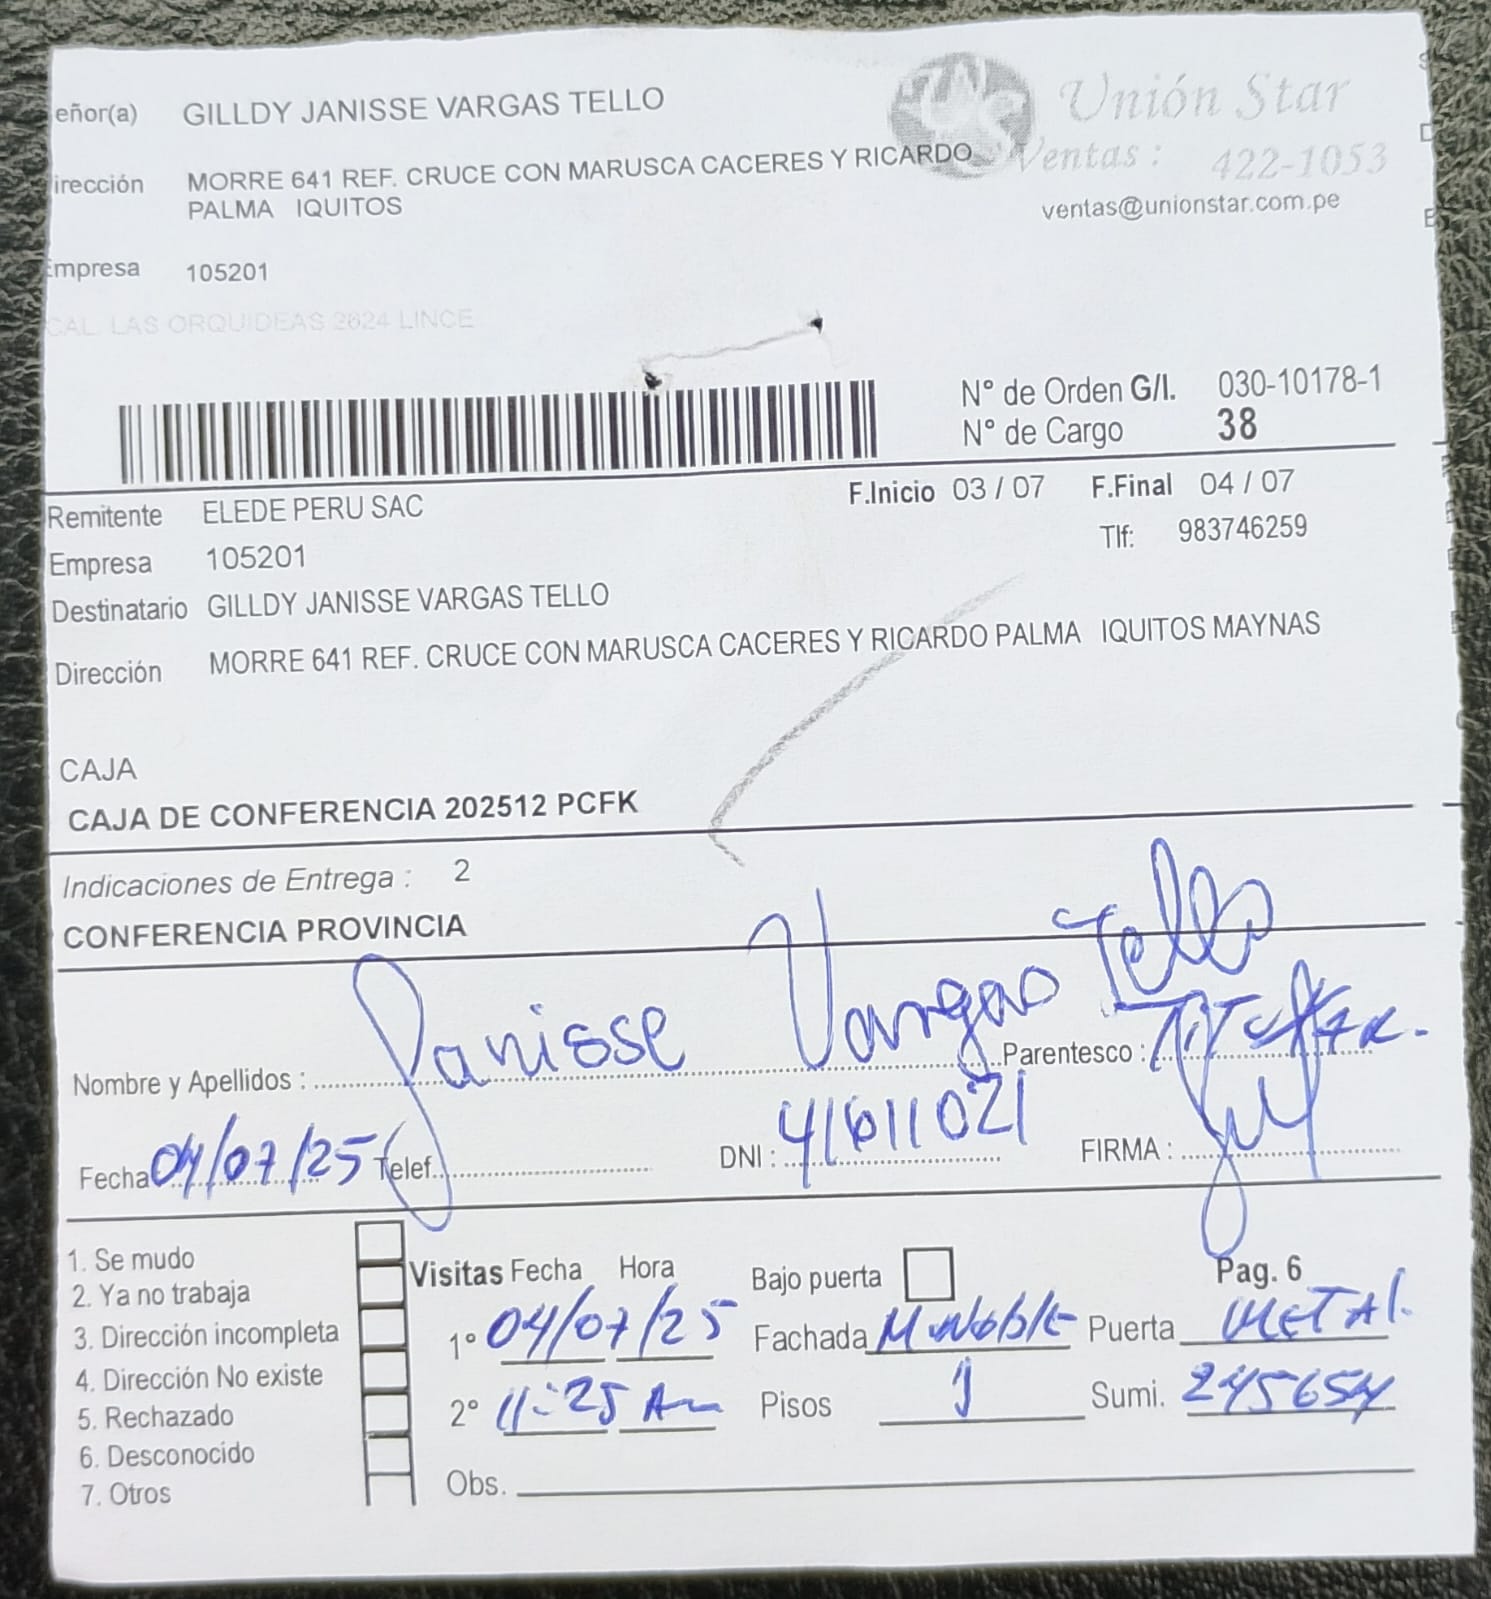 eñor(a) GILLDY JANISSE VARGAS TELLO
Unión Star
irección MORRE 641 REF. CRUCE CON MARUSCA CACERES Y RICARDO
PALMA IQUITOS
Ventas : 422-1053
ventas@unionstar.com.pe
Empresa 105201
CAL. LAS ORQUIDEAS 2624 LINCE
N° de Orden G/I. 030-10178-1
N° de Cargo 38
Remitente ELEDE PERU SAC
F.Inicio 03 / 07 F.Final 04 / 07
Empresa 105201
Tlf: 983746259
Destinatario GILLDY JANISSE VARGAS TELLO
Dirección MORRE 641 REF. CRUCE CON MARUSCA CACERES Y RICARDO PALMA IQUITOS MAYNAS
CAJA
CAJA DE CONFERENCIA 202512 PCFK
Indicaciones de Entrega : 2
CONFERENCIA PROVINCIA
Nombre y Apellidos : Janisse Vargas Tello Parentesco : TITULAR.
Fecha 04/07/25 Telef. DNI : 41611021 FIRMA :
1. Se mudo
2. Ya no trabaja
3. Dirección incompleta
4. Dirección No existe
5. Rechazado
6. Desconocido
7. Otros
Visitas Fecha Hora Bajo puerta Pag. 6
1° 04/07/25 Fachada M. Noble Puerta METAL.
2° 11:25 Am Pisos 1 Sumi. 245654
Obs.